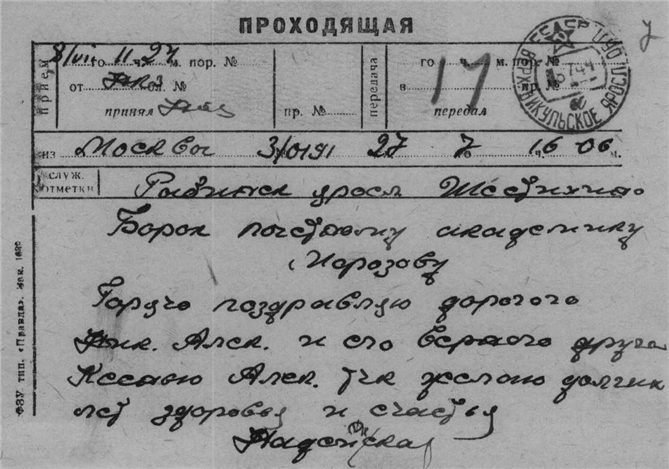 ПРОХОДЯЩАЯ
7
прием
8/VI го 11 ч. 27 м. пор. №
от
принял
пр. №
передача
го ч. м. пор. №
в пр. №
передал
17
СССР
ВЕРХ-НИКУЛЬСКОЕ ЯРОСЛ.
из Москвы 3/0191 27 7 ч. 16 06 м.
служ. отметки
Рыбинск яросл Шестихино
Борок почетному академику
Морозову
Горячо поздравляю дорогого
Ник. Алек. и его верного друга
Ксению Алек. тчк желаю долгих
лет здоровья и счастья
ФЗУ тип. «Правда». Зак. 1689